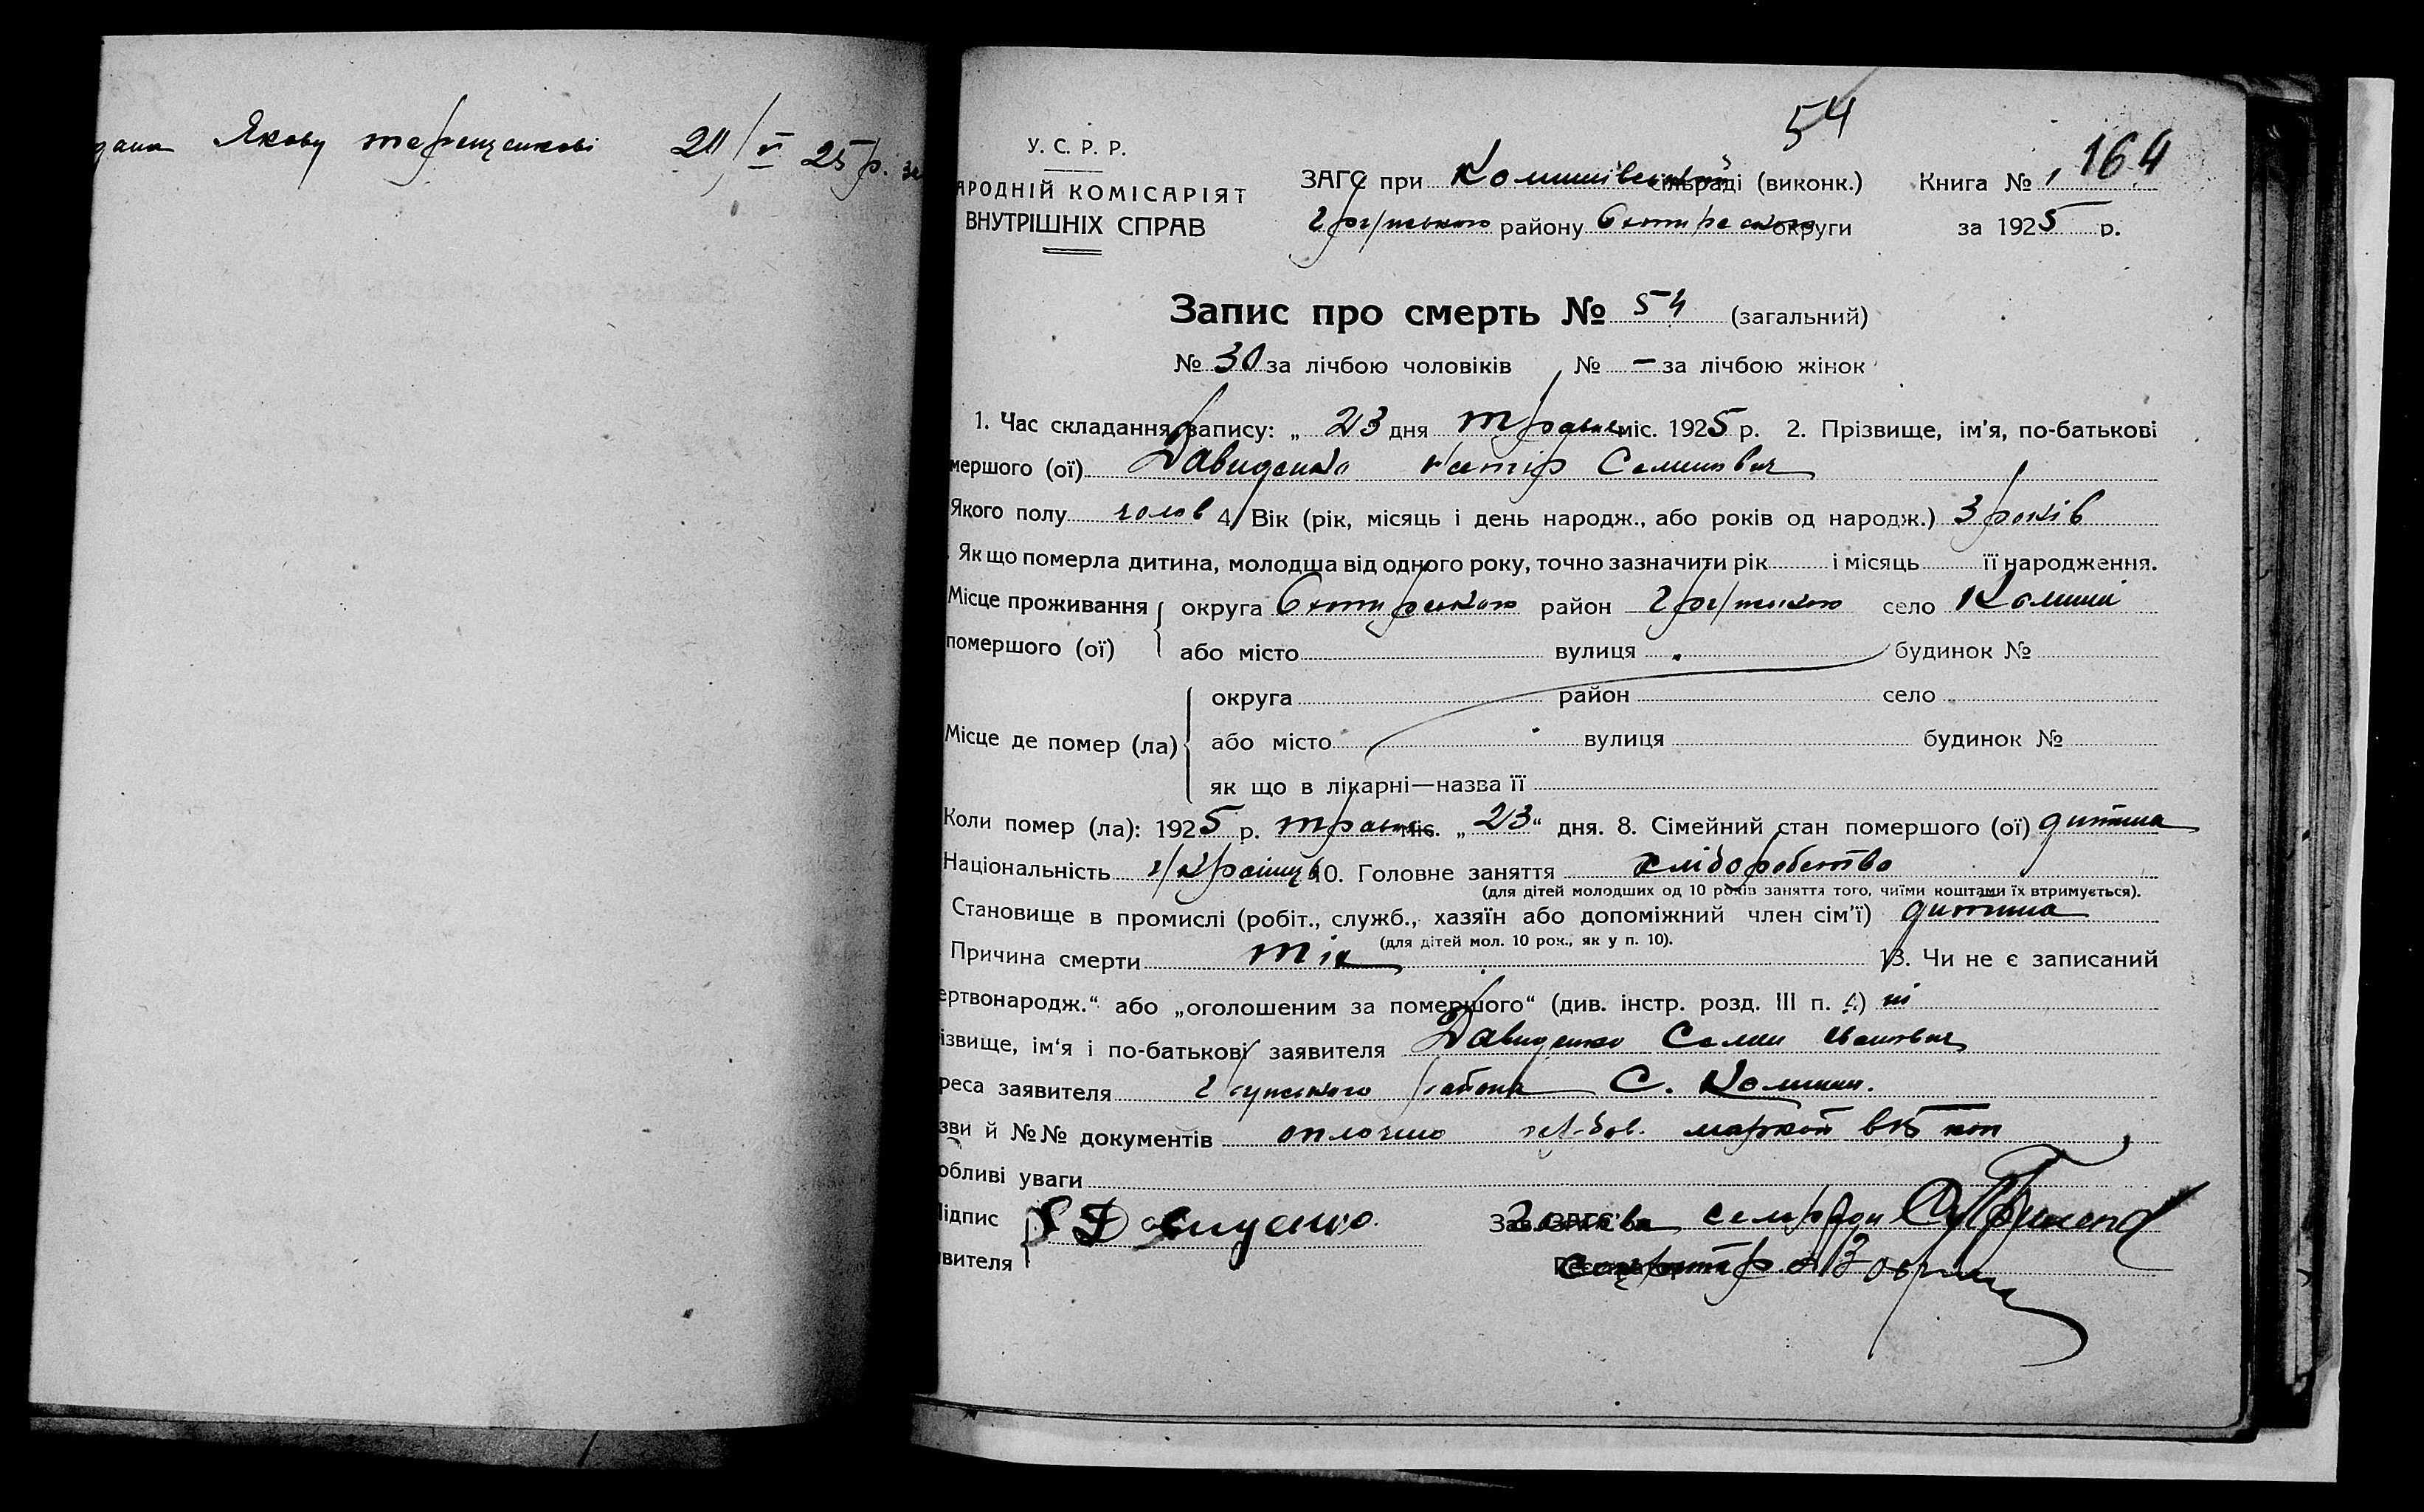 Якову терещенкові 24/V 25 р.
54
164
У. С. Р. Р.
АРОДНІЙ КОМІСАРІЯТ
ВНУТРІШНІХ СПРАВ
ЗАГС при сільраді (виконк.) Книга № 1
району округи за 1925 р.
Запис про смерть № 54 (загальний)
№ 30 за лічбою чоловіків № – за лічбою жінок
1. Час складання запису: „ 23 дня травня міс. 1925 р. 2. Прізвище, ім'я, по-батькові
мершого (ої) Давиденко
Якого полу чолов 4. Вік (рік, місяць і день народж., або років од народж.) 3 років
Як що померла дитина, молодша від одного року, точно зазначити рік і місяць її народження.
Місце проживання округа район село
помершого (ої) або місто вулиця будинок №
округа район село
Місце де помер (ла) або місто вулиця будинок №
як що в лікарні—назва її
Коли помер (ла): 1925 р. травня міс. „ 23 “ дня. 8. Сімейний стан помершого (ої) дитина
Національність українц 10. Головне заняття хліборобство
(для дітей молодших од 10 років заняття того, чиїми коштами їх втримується).
Становище в промислі (робіт., служб., хазяїн або допоміжний член сім'ї) дитина
(для дітей мол. 10 рок., як у п. 10).
Причина смерти 13. Чи не є записаний
ертвонародж.“ або „оголошеним за помершого“ (див. інстр. розд. III п. 4) ні
ізвище, ім'я і по-батькові заявителя Давиденко Семен Иванович
реса заявителя района С.
зви й №№ документів оплочено маркой 15 коп
обливі уваги
Підпис Давиденко Зав. ЗАГС'ом Голова сельради
явителя Секретар